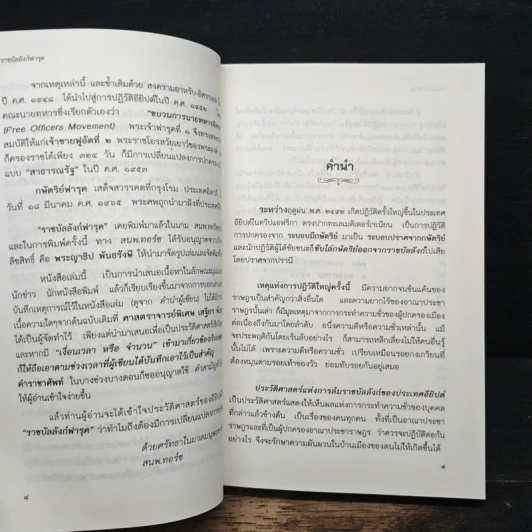 ราชบัลลังก์ฟารุค
จากเหตุเหล่านี้ และซ้ำเติมด้วย สงครามอาหรับ-อิสราเอล
ปี ค.ศ. ๑๙๔๘ ได้นำไปสู่การปฏิวัติอียิปต์ในปี ค.ศ. ๑๙๕๒
คณะนายทหารซึ่งเรียกตัวเองว่า "ขบวนการนายทหารอิสระ
(Free Officers Movement) พระเจ้าฟารุคที่ ๑ จึงทรงสละ
สมบัติให้แก่เจ้าชายฟูอัดที่ ๒ พระราชโอรสวัยเยาว์ของพระองค์
ก็ครองราชย์ได้เพียง ๓๒๔ วัน ก็มีการเปลี่ยนแปลงการปกครอง
แบบ "สาธารณรัฐ" ในปี ค.ศ. ๑๙๕๓
กษัตริย์ฟารุค เสด็จสวรรคตที่กรุงโรม ประเทศอิตาลี
วันที่ ๑๘ มีนาคม ค.ศ. ๑๙๖๕ พระศพถูกนำมาฝังที่ประเทศ
"ราชบัลลังก์ฟารุค" เคยพิมพ์มาแล้วในนาม สนพ.
และในการพิมพ์ครั้งนี้ ทาง สนพ.ทอร์ช ได้รับอนุญาตจาก
ลิขสิทธิ์ คือ พระญาธิป พันธรังษี ให้นำมาจัดรูปเล่มและจัดพิมพ์
หนังสือเล่มนี้ เป็นการนำเสนอเนื้อหาในลักษณะ
นักข่าว นักหนังสือพิมพ์ แล้วก็เรียบเรียงขึ้นมาจากการ
บันทึกเหตุการณ์ไว้ในหนังสือเล่ม (ดูจาก คำนำผู้เขียน)
เนื้อความใดๆจากต้นฉบับเดิมที่ ศาสตราจารย์พิเศษ เสฐียร พันธรังษี
ได้เป็นผู้จัดทำไว้ เพียงแต่นำมาเสนอเพื่อเป็นประวัติศาสตร์
และหากมี "เงื่อนเวลา หรือ จำนวน" เข้ามาเกี่ยวข้อง
ก็ให้ถือเอาตามช่วงเวลาที่ผู้เขียนได้บันทึกเอาไว้เป็นสำคัญ
คำราชาศัพท์ ในบางช่วงบางตอนก็ขออนุญาตใช้ คำสามัญ
ให้ผู้อ่านเข้าใจง่ายขึ้น
แล้วท่านผู้อ่านจะได้เข้าใจประวัติศาสตร์ของอียิปต์
"ราชบัลลังก์ฟารุค" ว่าทำไมถึงต้องมีการเปลี่ยนแปลงการปกครอง
ด้วยศรัทธาในมวลมนุษยชาติ
สนพ.ทอร์ช
๘
คำนำ
ระหว่างฤดูฝน พ.ศ. ๒๔๙๕ เกิดปฏิวัติครั้งใหญ่ขึ้นในประเทศ
อียิปต์ในทวีปแอฟริกา ตรงปากทะเลเมดิเตอร์เรเนียน เป็นการปฏิวัติ
การปกครองจาก ระบอบมีกษัตริย์ มาเป็น ระบอบปราศจากกษัตริย์
และนักปฏิวัติผู้ได้ชัยชนะก็ขับไล่กษัตริย์ออกจากราชบัลลังก์ไปเสีย
โดยปราศจากปรานี
เหตุแห่งการปฏิวัติใหญ่ครั้งนี้ มีความยากจนข้นแค้นของ
ราษฎรเป็นสำคัญกว่าสิ่งอื่นใด และความยากไร้ของอาณาประชา
ราษฎรนั้นเล่า ก็มีมูลเหตุมาจากการกระทำความชั่วของผู้ปกครองเมือง
ต่อเนื่องถึงกันมาโดยลำดับ อนึ่งความดีหรือความชั่วเหล่านั้น แม้
จะประพฤติกันโดยเร้นลับอย่างไร ก็ไม่สามารถหลีกเลี่ยงให้คนอื่นรู้
นั้นไม่ได้ เพราะความดีหรือความชั่ว เปรียบเหมือนรอยกงเกวียนที่
ต้องหมุนตามรอยเท้าของวัว ย่อมทับรอยกันอยู่เสมอ
ประวัติศาสตร์แห่งการล้มราชบัลลังก์ของประเทศอียิปต์
เป็นประวัติศาสตร์แสดงให้เห็นผลแห่งการกระทำความชั่วของบุคคล
ที่กล่าวแล้วข้างต้น เป็นเรื่องของคนทุกคน ทั้งที่เป็นอาณาประชา
ราษฎรและที่เป็นผู้ปกครองอาณาประชาราษฎร ว่าควรจะปฏิบัติต่อกัน
อย่างไร จึงจะรักษาความผันผวนในบ้านเมืองของตนไม่ให้เกิดขึ้นได้
๙